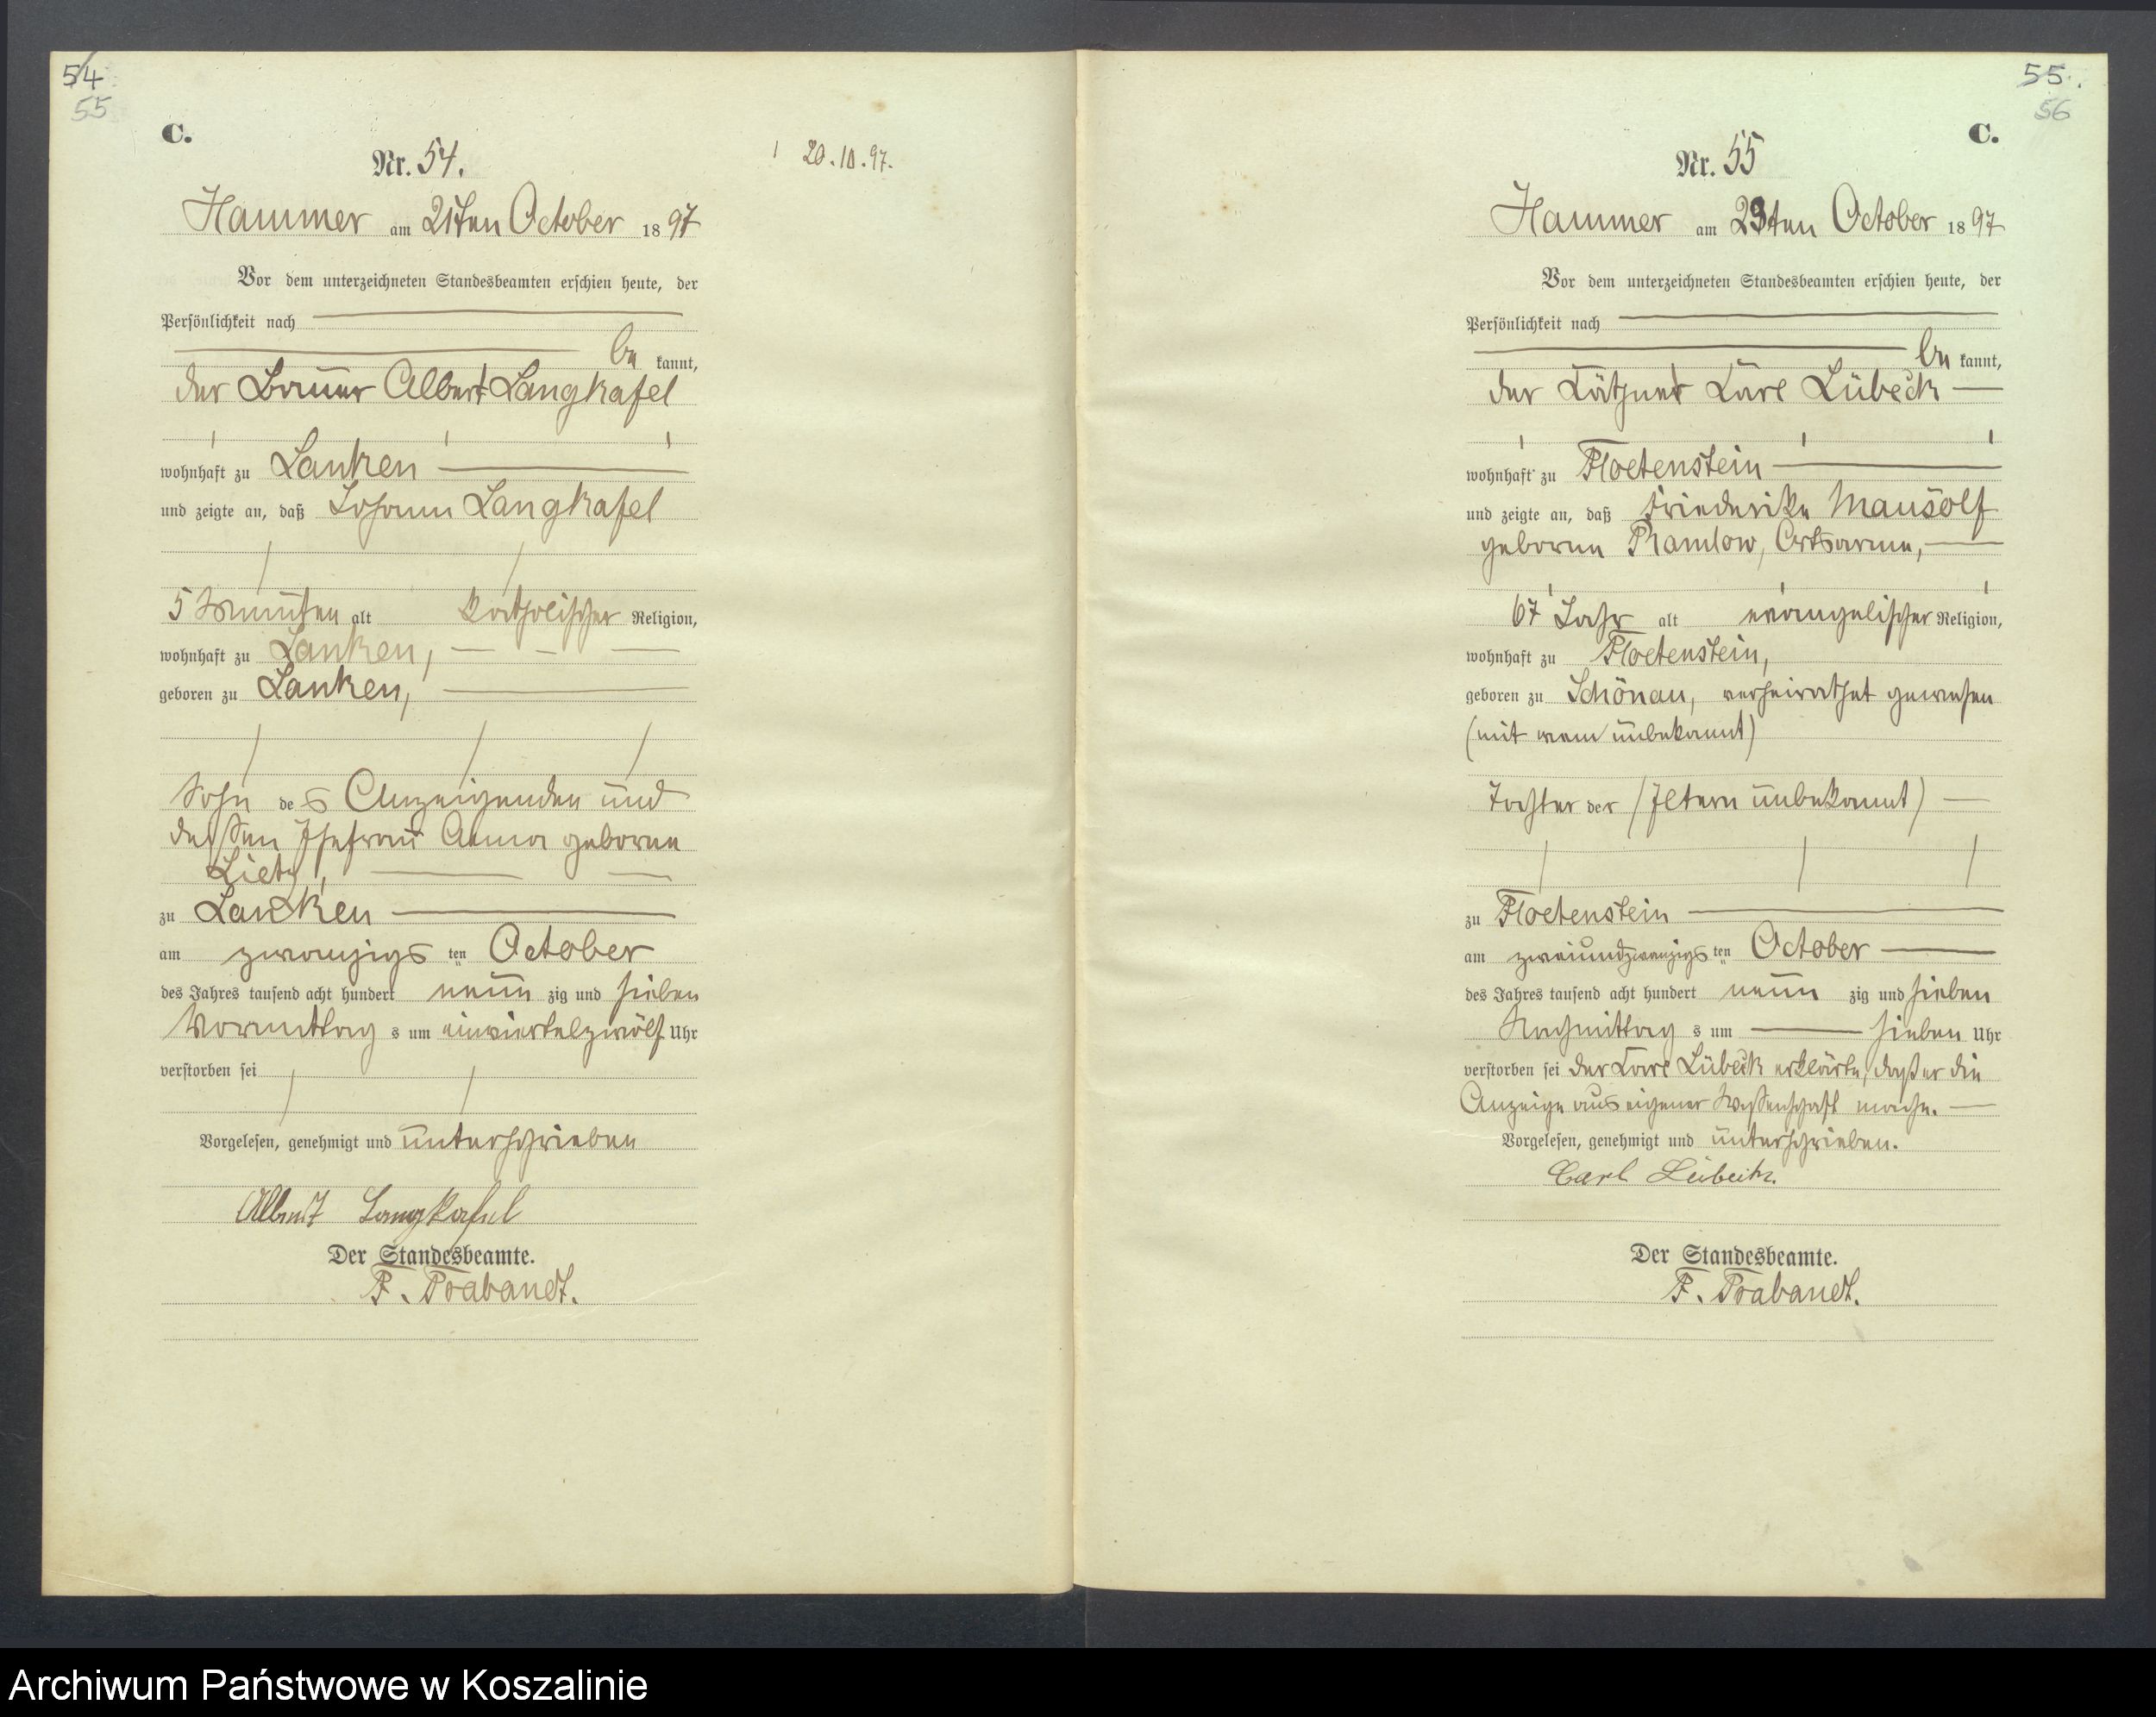 54
55
C.
Nr. 54.
20.10.97.
Hammer am 21ten October 1897
Vor dem unterzeichneten Standesbeamten erschien heute, der
Persönlichkeit nach
be kannt,
der Bauer Albert Langkafel
wohnhaft zu Lanken
und zeigte an, daß Johann Langkafel
5 Minuten alt katholischer Religion,
wohnhaft zu Lanken,
geboren zu Lanken,
Sohn des Anzeigenden und
dessen Ehefrau Anna geborene
Lietz,
zu Lanken
am zwanzigs ten October
des Jahres tausend acht hundert neun zig und sieben
Vormittag s um einviertelzwölf Uhr
verstorben sei
Vorgelesen, genehmigt und unterschrieben
Albert Langkafel
Der Standesbeamte.
F. Prabandt.
55.
56
C.
Nr. 55
Hammer am 23ten October 1897
Vor dem unterzeichneten Standesbeamten erschien heute, der
Persönlichkeit nach
be kannt,
der Käthner Karl Lübeck
wohnhaft zu Floetenstein
und zeigte an, daß Friederike Mausolf
geborene Ramlow, Ortsarme,
67 Jahr alt evangelischer Religion,
wohnhaft zu Floetenstein,
geboren zu Schönau, verheirathet gewesen
(mit wem unbekannt)
Tochter der (Eltern unbekannt)
zu Floetenstein
am zweiundzwanzigs ten October
des Jahres tausend acht hundert neun zig und sieben
Nachmittag s um sieben Uhr
verstorben sei der Karl Lübeck erklärte, daß er die
Anzeige aus eigener Wissenschaft mache.
Vorgelesen, genehmigt und unterschrieben.
Carl Lübeck.
Der Standesbeamte.
F. Prabandt.
Archiwum Państwowe w Koszalinie